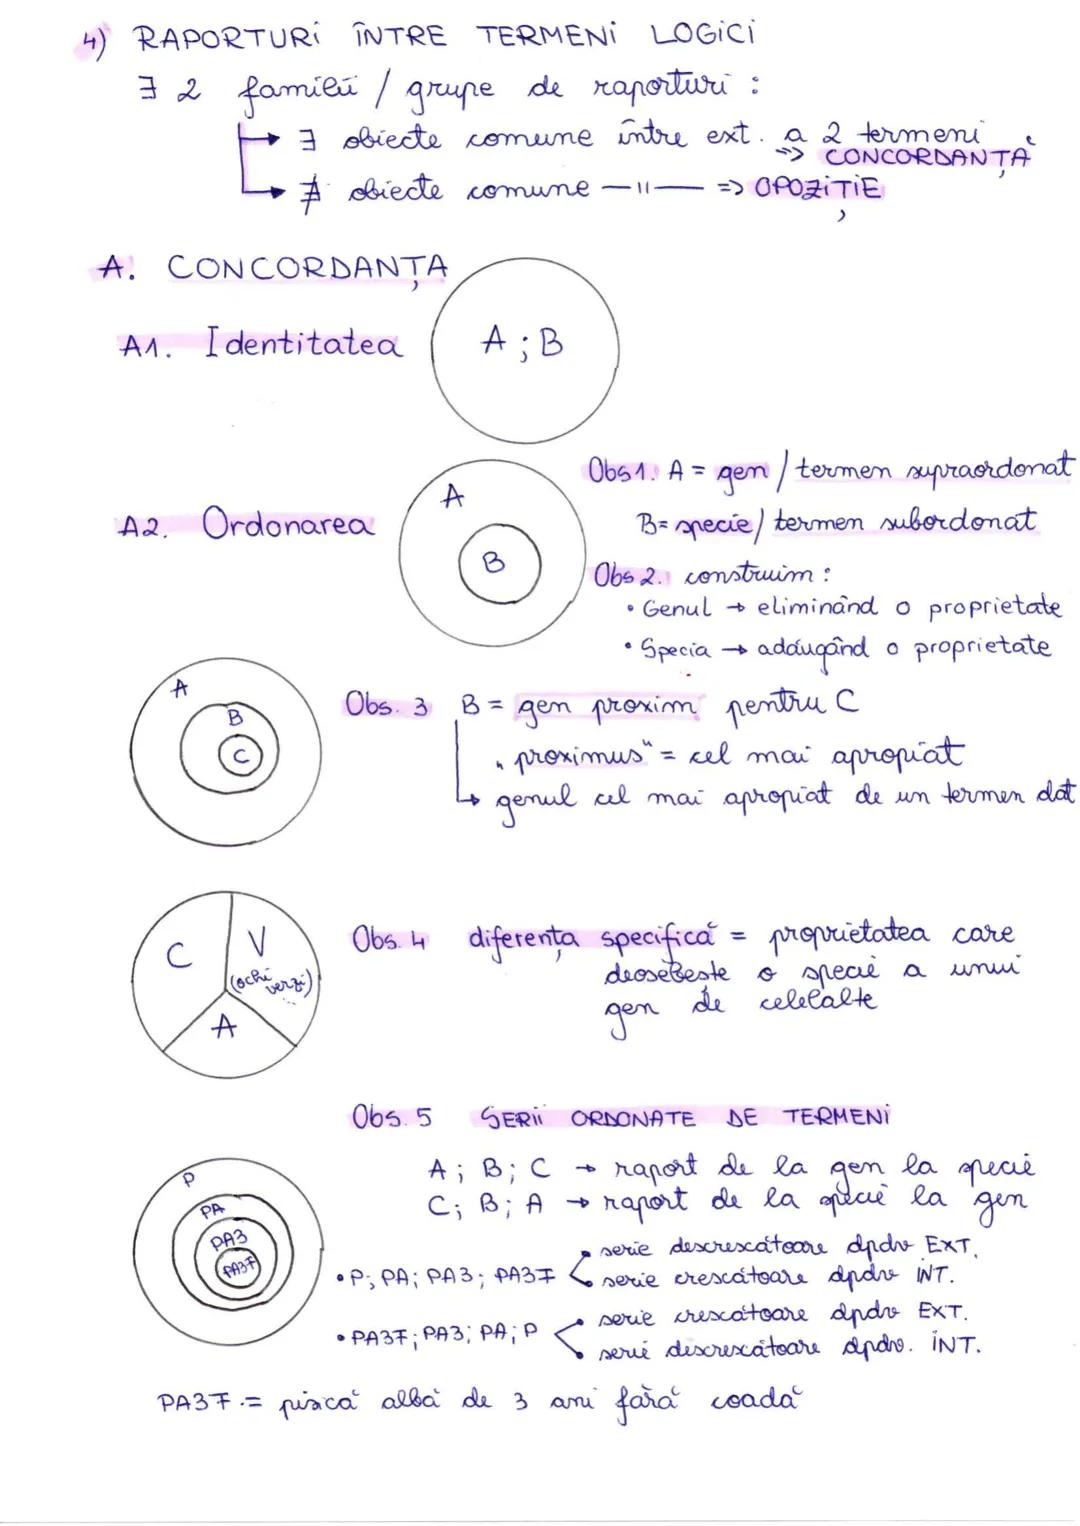 4) RAPORTURI ÎNTRE TERMENI LOGICI
∃ 2 familii / grupe de raporturi :
→ ∃ obiecte comune între ext. a 2 termeni
=> CONCORDANȚĂ
→ ∄ obiecte comune —11— => OPOZIȚIE
A. CONCORDANȚA
A1. Identitatea
A ; B
A2. Ordonarea
A
B
Obs1. A = gen / termen supraordonat
B= specie/ termen subordonat
Obs 2. construim :
• Genul → eliminând o proprietate
• Specia → adăugând o proprietate
A
B
C
Obs. 3 B = gen proxim pentru C
„proximus" = cel mai apropiat
→ genul cel mai apropiat de un termen dat
C
V
(ochi verzi)
A
Obs. 4 diferența specifică = proprietatea care
deosebeste o specie a unui
gen de celelalte
Obs. 5 SERII ORDONATE DE TERMENI
A ; B; C → raport de la gen la specie
C; B; A → raport de la specie la gen
P
PA
PA3
PA3F
• P; PA; PA3; PA3F
serie descrescătoare dpdv EXT.
serie crescătoare dpdv INT.
• PA3F; PA3; PA; P
serie crescătoare dpdv EXT.
serie discrescătoare dpdv. INT.
PA3F .= pisică albă de 3 ani fără coadă